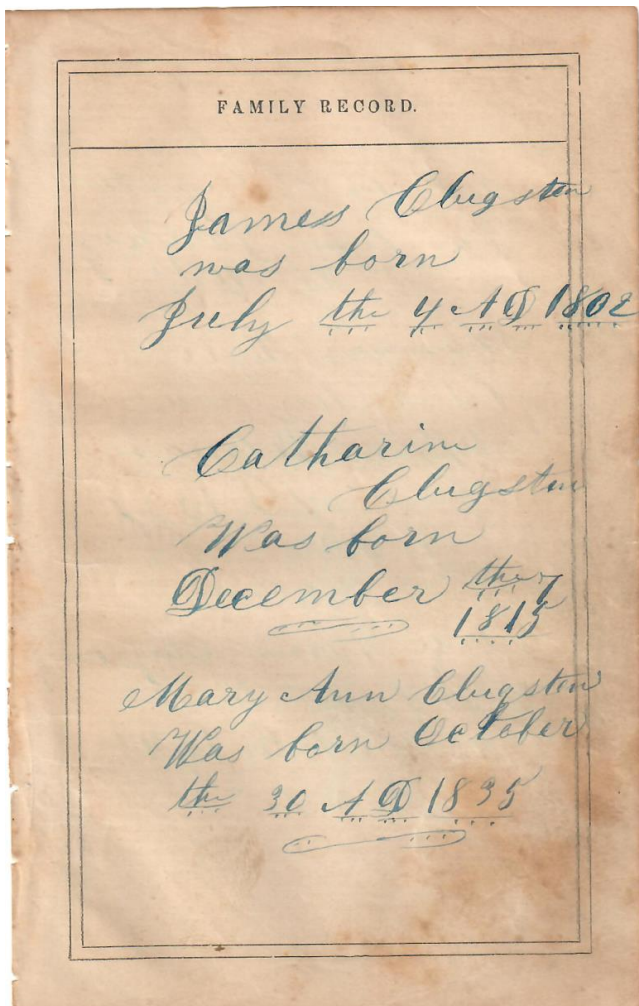 FAMILY RECORD.
James Clugston
was born
July the 4 AD 1802
Catharine
Clugston
Was born
December the 7
1815
Mary Ann Clugston
Was born October
the 30 AD 1835